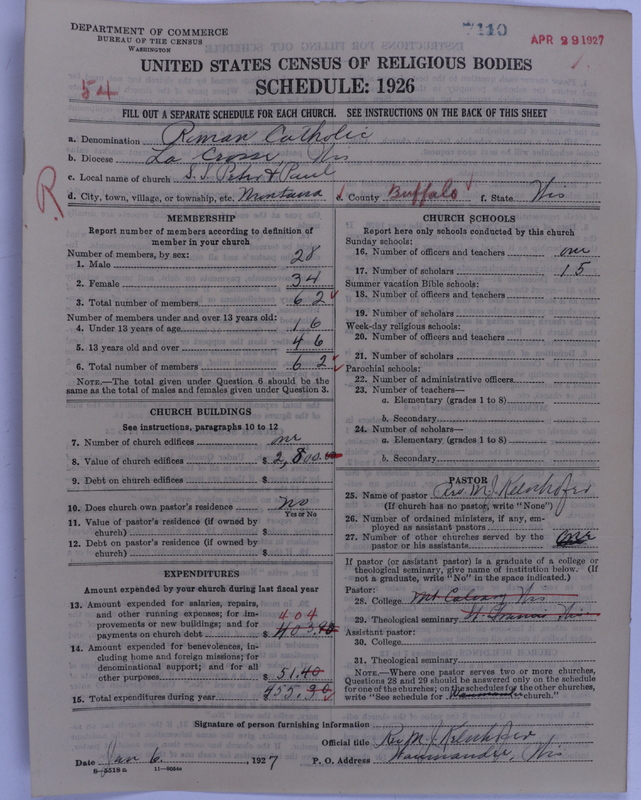 DEPARTMENT OF COMMERCE
BUREAU OF THE CENSUS
WASHINGTON
7110
APR 29 1927
54
UNITED STATES CENSUS OF RELIGIOUS BODIES
SCHEDULE: 1926
FILL OUT A SEPARATE SCHEDULE FOR EACH CHURCH. SEE INSTRUCTIONS ON THE BACK OF THIS SHEET
a. Denomination Roman Catholic
b. Diocese La Crosse, Wis
c. Local name of church S.S. Peter & Paul
R
d. City, town, village, or township, etc. Montana e. County Buffalo f. State Wis
MEMBERSHIP
Report number of members according to definition of
member in your church
Number of members, by sex:
1. Male 28
2. Female 34
3. Total number of members 62
Number of members under and over 13 years old:
4. Under 13 years of age 16
5. 13 years old and over 46
6. Total number of members 62
NOTE.—The total given under Question 6 should be the
same as the total of males and females given under Question 3.
CHURCH BUILDINGS
See instructions, paragraphs 10 to 12
7. Number of church edifices one
8. Value of church edifices $ 2,800.00
9. Debt on church edifices $
10. Does church own pastor's residence? No
Yes or No
11. Value of pastor's residence (if owned by
church) $
12. Debt on pastor's residence (if owned by
church) $
EXPENDITURES
Amount expended by your church during last fiscal year
13. Amount expended for salaries, repairs,
and other running expenses; for im-
provements or new buildings; and for 404
payments on church debt $ 403.
14. Amount expended for benevolences, in-
cluding home and foreign missions; for
denominational support; and for all
other purposes $ 51.40
15. Total expenditures during year 455.
CHURCH SCHOOLS
Report here only schools conducted by this church
Sunday schools:
16. Number of officers and teachers one
17. Number of scholars 15
Summer vacation Bible schools:
18. Number of officers and teachers
19. Number of scholars
Week-day religious schools:
20. Number of officers and teachers
21. Number of scholars
Parochial schools:
22. Number of administrative officers
23. Number of teachers—
a. Elementary (grades 1 to 8)
b. Secondary
24. Number of scholars—
a. Elementary (grades 1 to 8)
b. Secondary
PASTOR
25. Name of pastor Rev M. J. Kelnhofer
(If church has no pastor, write "None")
26. Number of ordained ministers, if any, em-
ployed as assistant pastors
27. Number of other churches served by the
pastor or his assistants one
If pastor (or assistant pastor) is a graduate of a college or
theological seminary, give name of institution below. (If
not a graduate, write "No" in the space indicated.)
Pastor:
28. College Mt Calvary Wis
29. Theological seminary St Francis Wis
Assistant pastor:
30. College
31. Theological seminary
NOTE.—Where one pastor serves two or more churches,
Questions 28 and 29 should be answered only on the schedule
for one of the churches; on the schedules for the other churches,
write "See schedule for Waumandee church."
Signature of person furnishing information
Official title Rev M. J. Kelnhofer
Date Jan 6, 1927 P. O. Address Waumandee, Wis
8—5518a 11—9054a